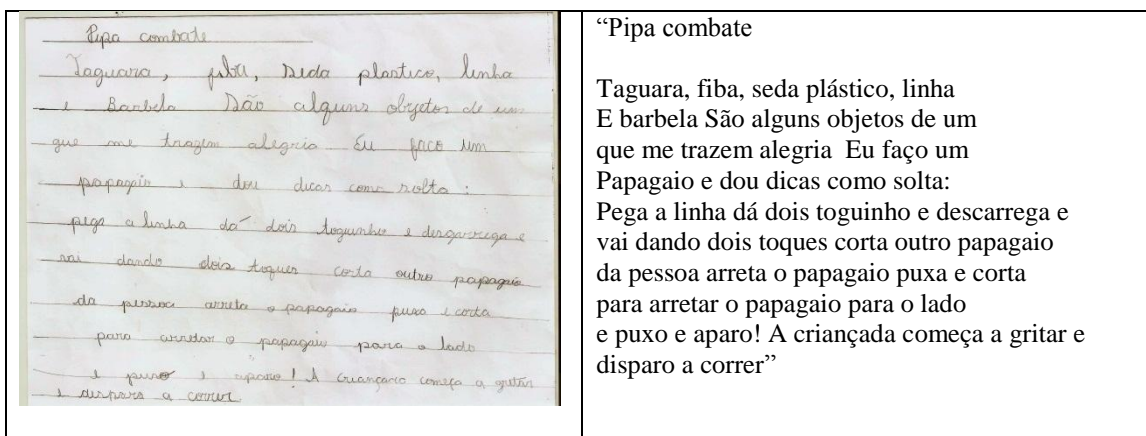 Pipa combate
Taguara, fibra, seda plastico, linha
e Barbela São alguns objetos de um
que me trazem alegria Eu faço um
papagaio e dou dicas como solta:
pega a linha dá dois toguinho e descarrega e
vai dando dois toques corta outro papagaio
da pessoa arreta o papagaio puxa e corta
para arretar o papagaio para o lado
e puxo e aparo! A criançara começa a gritar
e disparo a correr
“Pipa combate
Taguara, fiba, seda plástico, linha
E barbela São alguns objetos de um
que me trazem alegria Eu faço um
Papagaio e dou dicas como solta:
Pega a linha dá dois toguinho e descarrega e
vai dando dois toques corta outro papagaio
da pessoa arreta o papagaio puxa e corta
para arretar o papagaio para o lado
e puxo e aparo! A criançada começa a gritar e
disparo a correr”